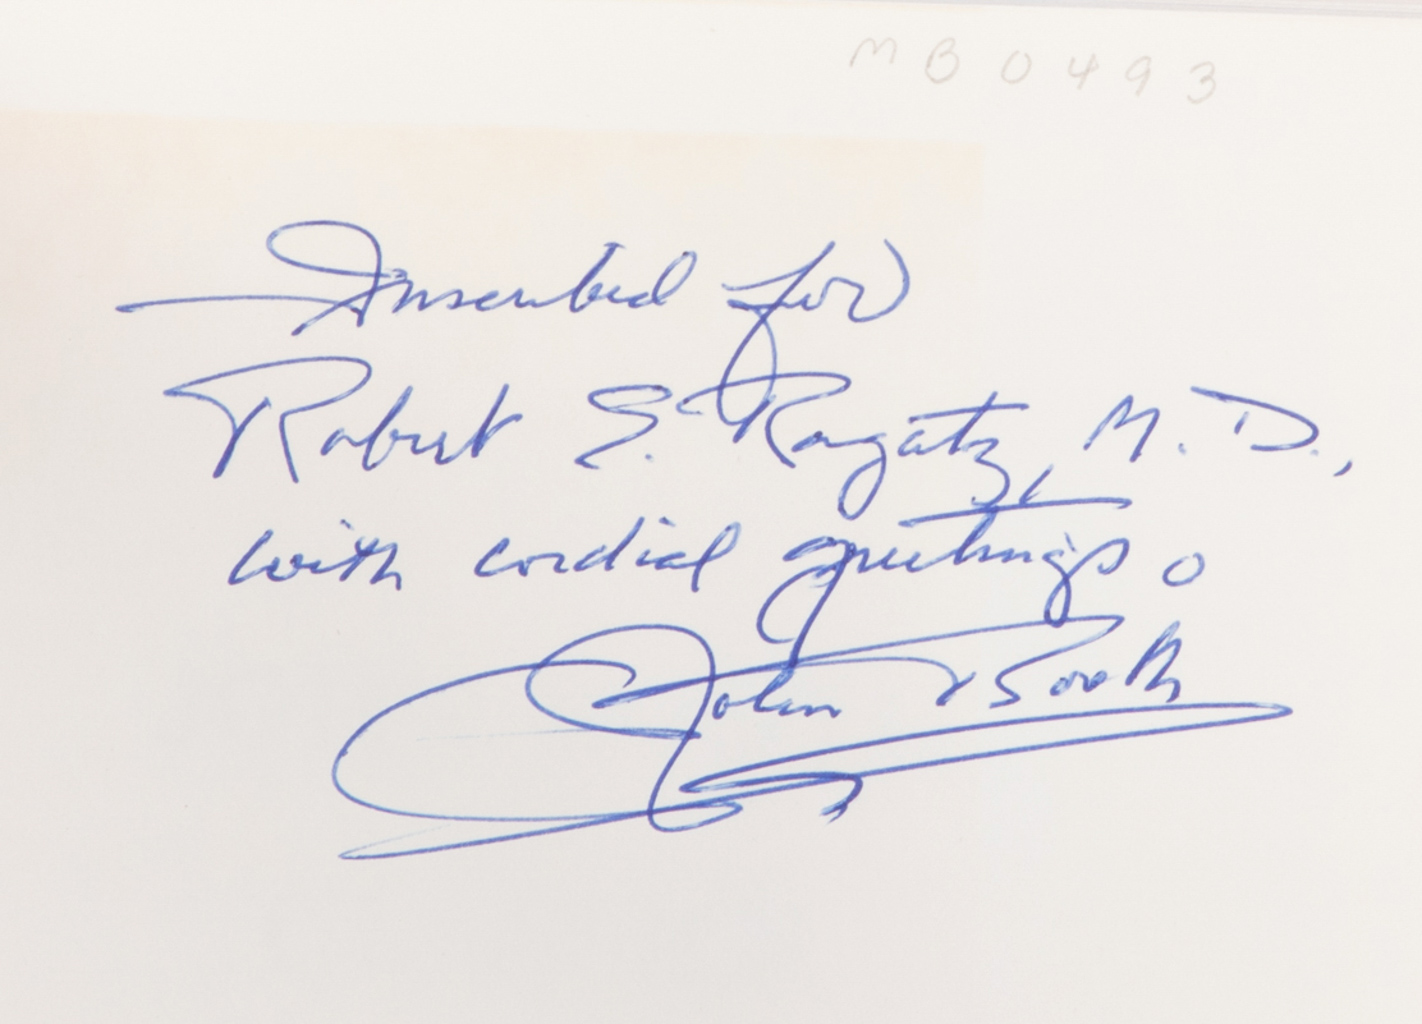 MB0493
Inscribed for
Robert S. Ragatz, M.D.,
with cordial greetings.
John Booth